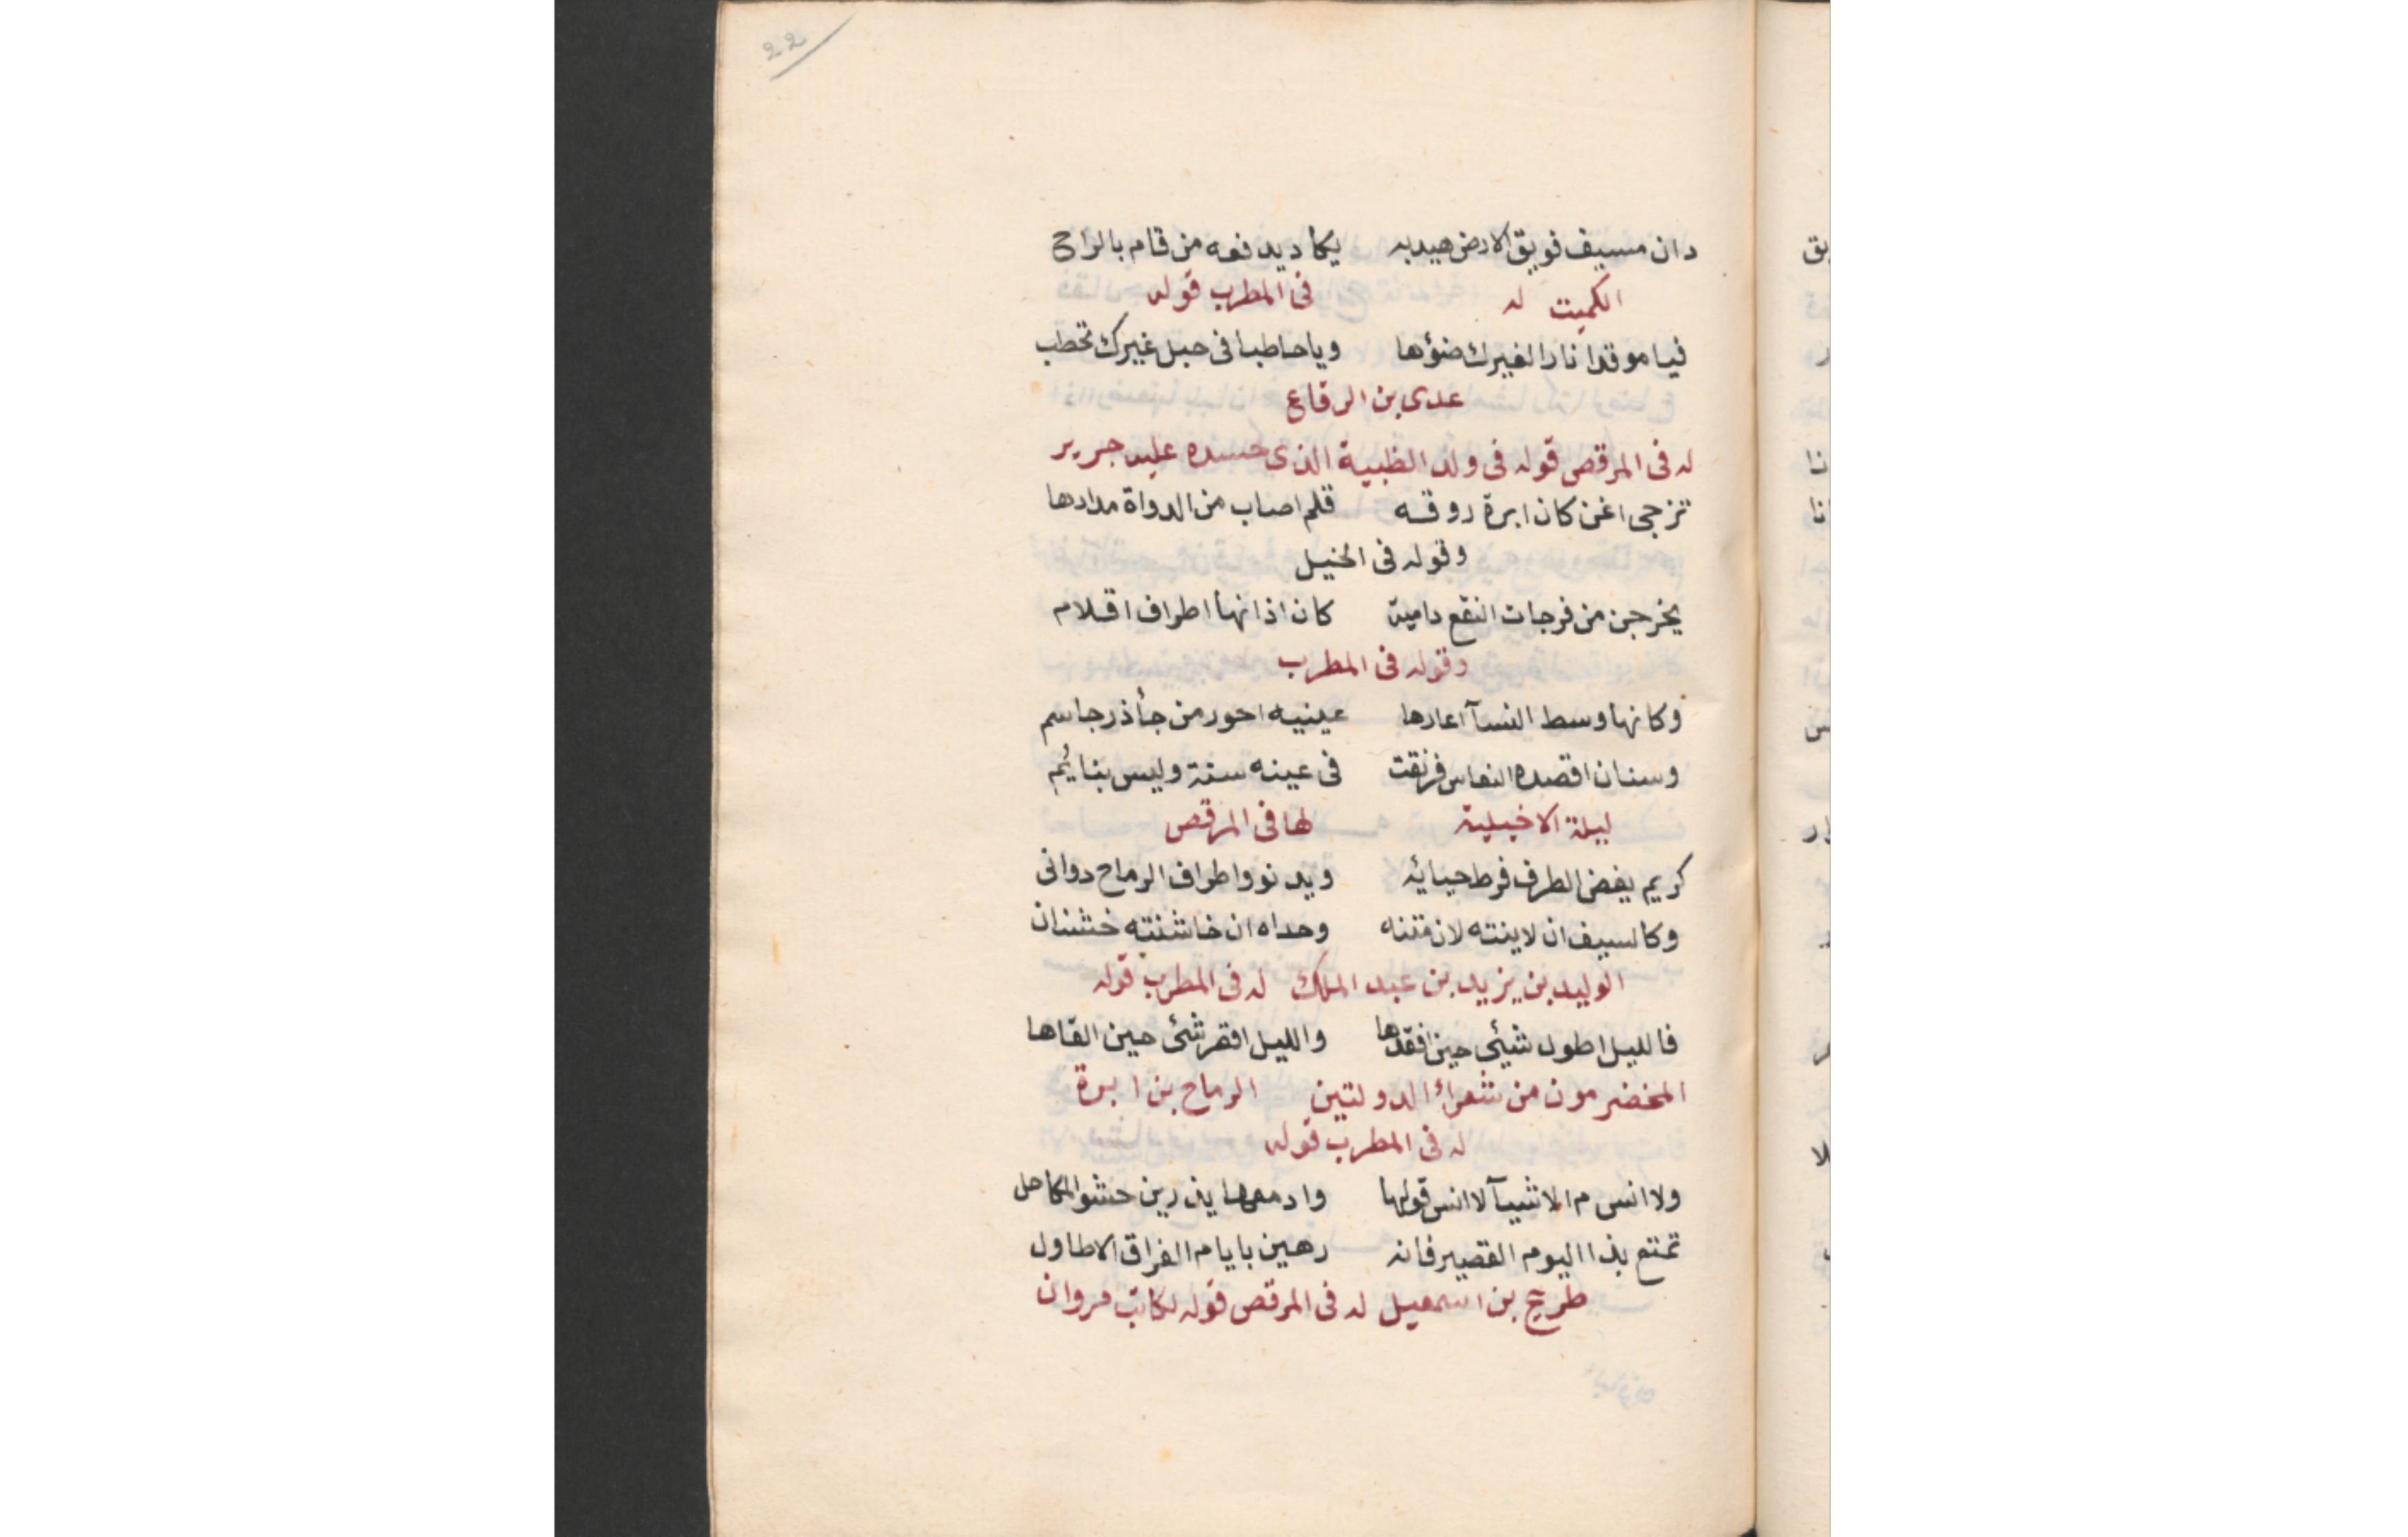 22
دان مسيف فويق الارض هيدبه يكاد يدفعه من قام بالراح
الكميت له في المطرب قوله
فيا موقدا نارا لغيرك ضؤها وياحاطبا في حبل غيرك تحطب
عدى بن الرقاع
له في المرقص قوله في ولد الظبية الذى حسده عليه جرير
تزجى اغن كان ابرة روقه قلم اصاب من الدواة مدادها
وقوله في الخيل
يخرجن من فرجات النقع دامية كان اذانها اطراف اقلام
وقوله في المطرب
وكانها وسط النسآ اعارها عينيه احور من جأذر جاسم
وسنان اقصده النعاس فرنقت في عينه سنة وليس بنايُم
ليلة الاخيلية لها في المرقص
كريم يغض الطرف فرط حيائه ويدنو واطراف الرماح دوانى
وكالسيف ان لاينته لان متنه وحداه ان خاشنته خشنان
الوليد بن يزيد بن عبد الملك له في المطرب قوله
فالليل اطول شيئ حين افقدها والليل اقصر شئ حين القاها
المخضرمون من شعراء الدولتين الرماح بن ابرة
له في المطرب قوله
ولا انس م الاشيآ لا انس قولها وادمعها يذرين حشو المكاحل
تمتع بذا اليوم القصير فانه رهين بايام الفراق الاطاول
طريح بن اسمعيل له في المرقص قوله لكاتب مروان